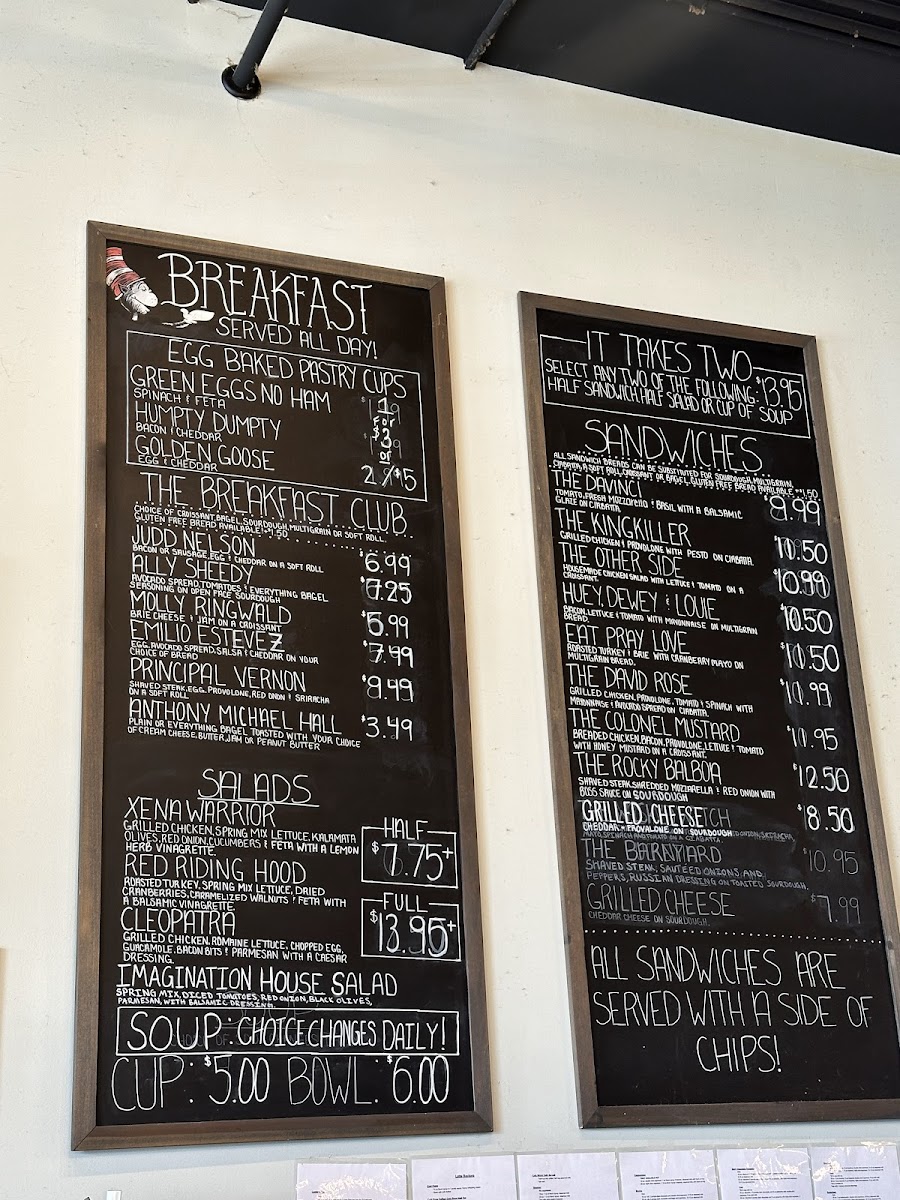 BREAKFAST
SERVED ALL DAY!
EGG BAKED PASTRY CUPS
GREEN EGGS NO HAM
SPINACH & FETA
HUMPTY DUMPTY
BACON & CHEDDAR
GOLDEN GOOSE
EGG & CHEDDAR
1
for
$3
or
2/$5
THE BREAKFAST CLUB
CHOICE OF CROISSANT, BAGEL, SOURDOUGH, MULTIGRAIN OR SOFT ROLL.
GLUTEN FREE BREAD AVAILABLE! $1.50
JUDD NELSON $6.99
BACON OR SAUSAGE, EGG & CHEDDAR ON A SOFT ROLL
ALLY SHEEDY $7.25
AVOCADO SPREAD, TOMATOES & EVERYTHING BAGEL
SEASONING ON OPEN FACE SOURDOUGH
MOLLY RINGWALD $5.99
BRIE CHEESE & JAM ON A CROISSANT
EMILIO ESTEVEZ $7.49
EGG, AVOCADO SPREAD, SALSA & CHEDDAR ON YOUR
CHOICE OF BREAD
PRINCIPAL VERNON $8.49
SHAVED STEAK, EGG, PROVOLONE, RED ONION & SRIRACHA
ON A SOFT ROLL
ANTHONY MICHAEL HALL $3.49
PLAIN OR EVERYTHING BAGEL TOASTED WITH YOUR CHOICE
OF CREAM CHEESE, BUTTER, JAM OR PEANUT BUTTER
SALADS
XENA WARRIOR
GRILLED CHICKEN, SPRING MIX LETTUCE, KALAMATA
OLIVES, RED ONION, CUCUMBERS & FETA WITH A LEMON
HERB VINAGRETTE.
RED RIDING HOOD
ROASTED TURKEY, SPRING MIX LETTUCE, DRIED
CRANBERRIES, CARAMELIZED WALNUTS & FETA WITH
A BALSAMIC VINAGRETTE
CLEOPATRA
GRILLED CHICKEN, ROMAINE LETTUCE, CHOPPED EGG,
GUACAMOLE, BACON BITS & PARMESAN WITH A CAESAR
DRESSING.
HALF
$7.75+
FULL
$13.95+
IMAGINATION HOUSE SALAD
SPRING MIX, DICED TOMATOES, RED ONION, BLACK OLIVES,
PARMESAN, WITH BALSAMIC DRESSING.
SOUP: CHOICE CHANGES DAILY!
CUP: $5.00 BOWL: $6.00
IT TAKES TWO
SELECT ANY TWO OF THE FOLLOWING: $13.95
HALF SANDWICH, HALF SALAD OR CUP OF SOUP
SANDWICHES
ALL SANDWICH BREADS CAN BE SUBSTITUTED FOR SOURDOUGH, MULTIGRAIN,
CIABATTA, A SOFT ROLL, CROISSANT OR BAGEL, GLUTEN FREE BREAD AVAILABLE $1.50
THE DAVINCI $8.99
TOMATO, FRESH MOZZARELLA & BASIL WITH A BALSAMIC
GLAZE ON CIABATTA.
THE KINGKILLER $10.50
GRILLED CHICKEN & PROVOLONE WITH PESTO ON CIABATTA
THE OTHER SIDE $10.99
HOUSEMADE CHICKEN SALAD WITH LETTUCE & TOMATO ON A
CROISSANT.
HUEY, DEWEY & LOUIE $10.50
BACON, LETTUCE & TOMATO WITH MAYONNAISE ON MULTIGRAIN
BREAD.
EAT PRAY LOVE $10.50
ROASTED TURKEY & BRIE WITH CRANBERRY MAYO ON
MULTIGRAIN BREAD.
THE DAVID ROSE $11.99
GRILLED CHICKEN, PROVOLONE, TOMATO & SPINACH WITH
MAYONNAISE & AVOCADO SPREAD ON CIABATTA.
THE COLONEL MUSTARD $11.95
BREADED CHICKEN, BACON, PROVOLONE, LETTUCE & TOMATO
WITH HONEY MUSTARD ON A CROISSANT.
THE ROCKY BALBOA $12.50
SHAVED STEAK, SHREDDED MOZZARELLA & RED ONION WITH
BOSS SAUCE ON SOURDOUGH
GRILLED CHEESE $8.50
CHEDDAR & PROVALONE ON SOURDOUGH
THE BARNYARD $10.95
SHAVED STEAK, SAUTEED ONIONS AND
PEPPERS, RUSSIAN DRESSING ON TOASTED SOURDOUGH.
GRILLED CHEESE $7.99
CHEDDAR CHEESE ON SOURDOUGH.
ALL SANDWICHES ARE
SERVED WITH A SIDE OF
CHIPS!